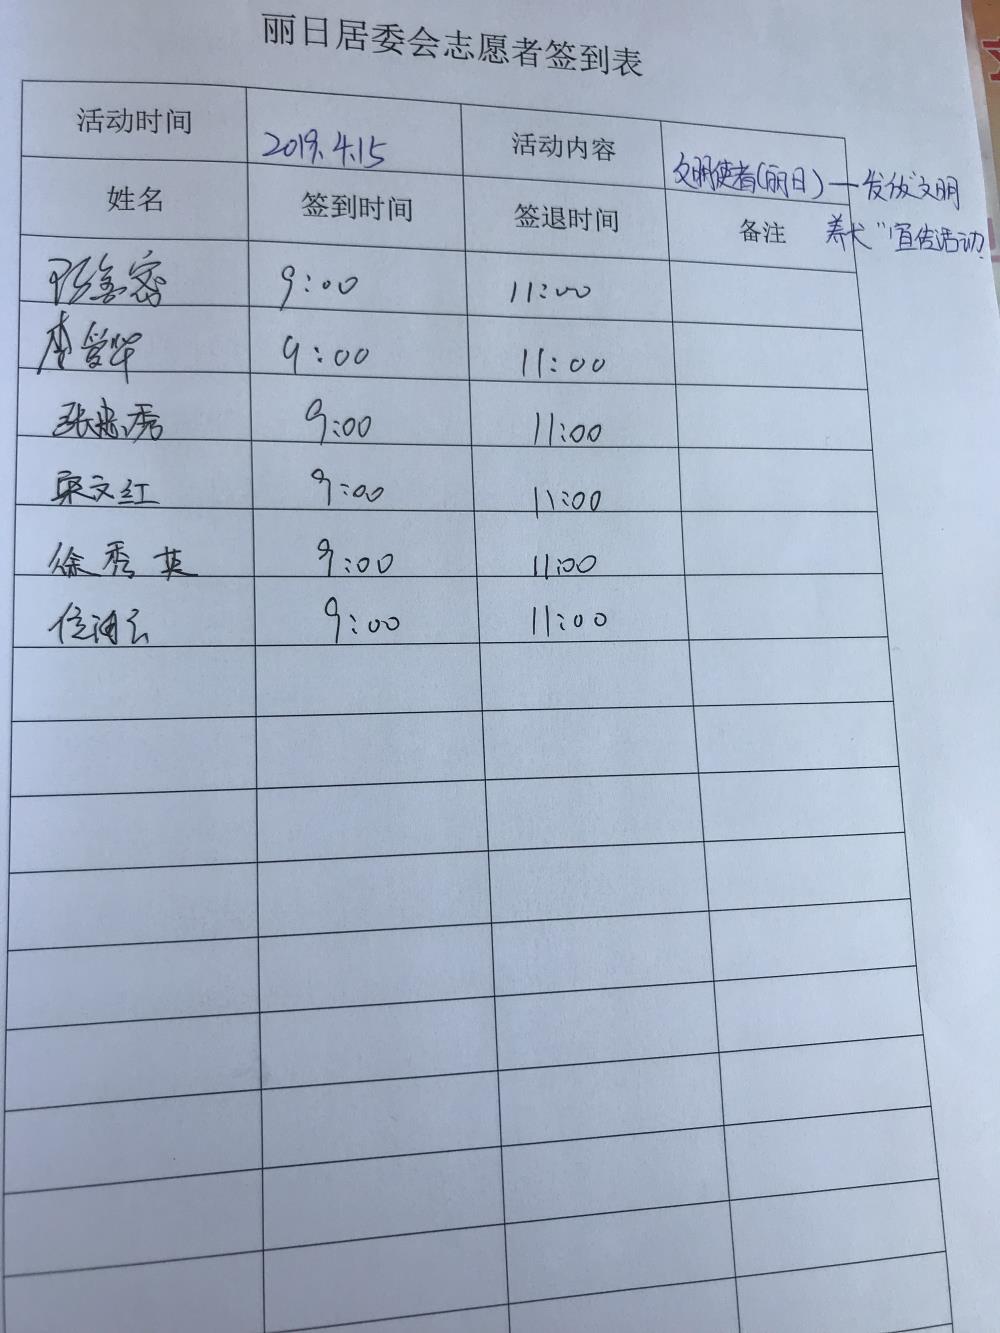 丽日居委会志愿者签到表
活动时间 2019.4.15 活动内容 文明使者(丽日)—发放"文明
养犬"宣传活动
姓名 签到时间 签退时间 备注
9:00 11:00
李爱华 9:00 11:00
张忠秀 9:00 11:00
梁文红 9:00 11:00
徐秀英 9:00 11:00
9:00 11:00